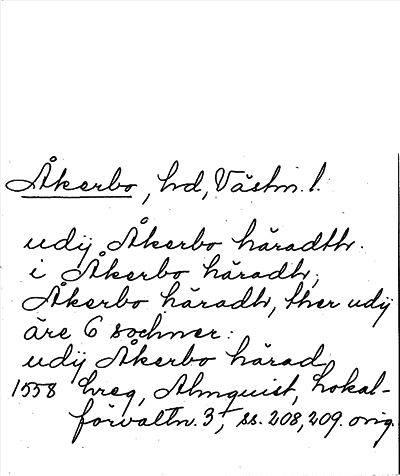 Åkerbo, hd, Västm. l.
udij Åkerbo häradthr.
i Åkerbo häradhr,
Åkerbo häradhr, ther udij
äre 6 sochner:
udij Åkerbo härad,
1558 hreg, Almquist, Lokal-
förvaltn. 3, ss. 208, 209. orig.